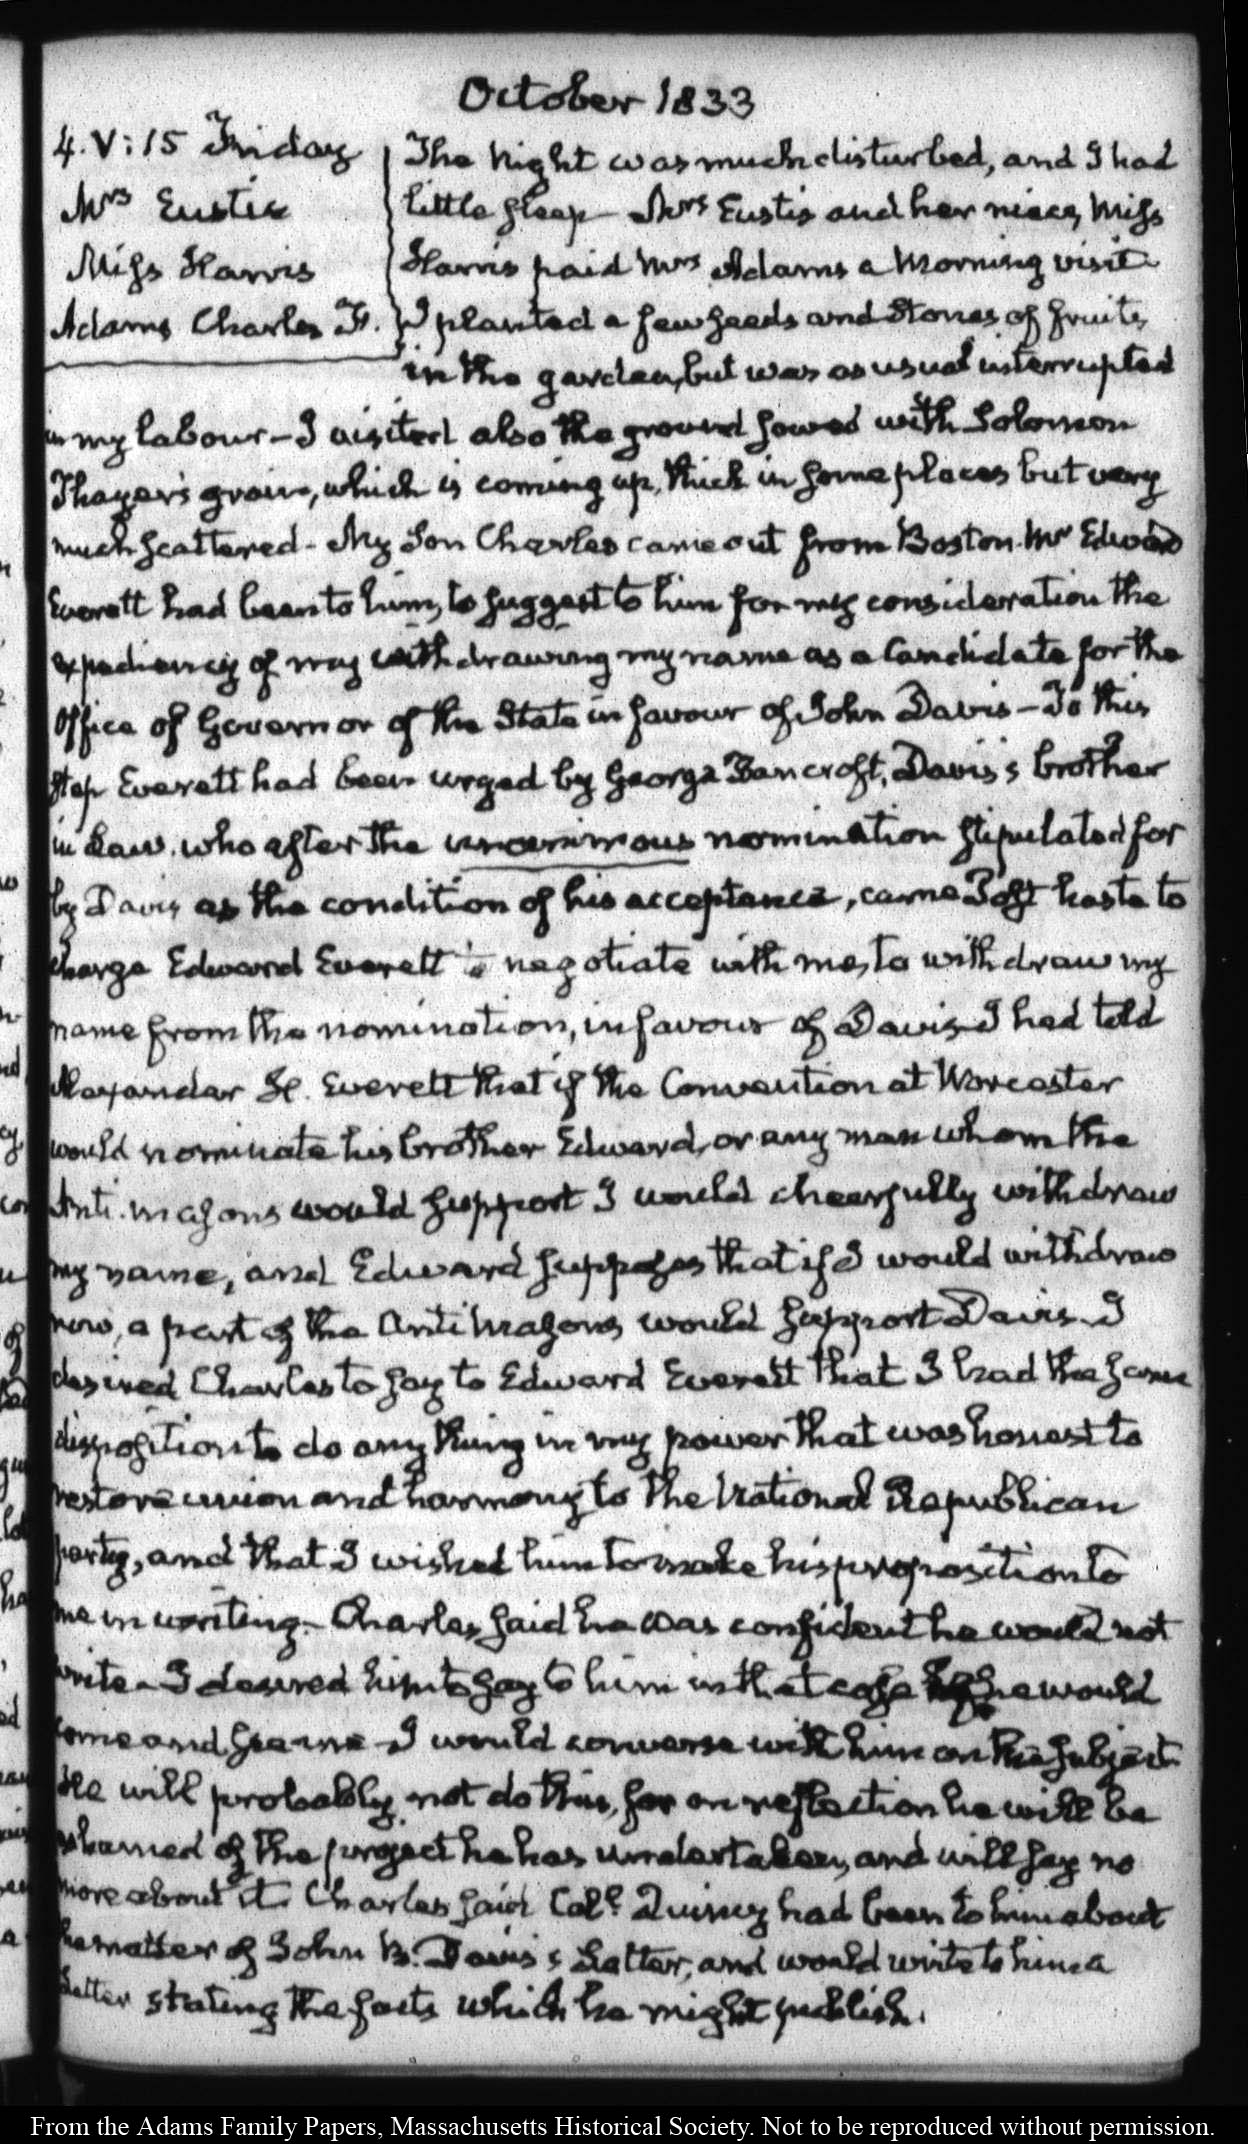 October 1833
4. V:15 Friday
Mrs Eustis
Miss Harris
Adams Charles F.
The Night was much disturbed, and I had
little sleep— Mrs Eustis and her niece, Miss
Harris paid Mrs Adams a Morning visit
I planted a few seeds and Stones of fruits,
in the garden, but was as usual interrupted
in my labour— I visited also the ground sowed with Solomon
Thayer's grain, which is coming up, thick in some places but very
much scattered— My Son Charles came out from Boston. Mr Edward
Everett had been to him, to suggest to him for my consideration the
expediency of my withdrawing my name as a Candidate for the
Office of Governor of the State in favour of John Davis— To this
step Everett had been urged by George Bancroft, Davis's brother
in Law. who after the unanimous nomination stipulated for
by Davis as the condition of his acceptance, came Post haste to
charge Edward Everett to negotiate with me, to withdraw my
name from the nomination, in favour of Davis— I had told
Alexander H. Everett that if the Convention at Worcester
would nominate his brother Edward, or any man whom the
Anti-masons would support I would cheerfully withdraw
my name, and Edward supposes that if I would withdraw
now, a part of the Antimasons would support Davis— I
desired Charles to say to Edward Everett that I had the same
disposition to do any thing in my power that was honest to
restore union and harmony to the National Republican
party, and that I wished him to make his proposition to
me in writing— Charles said he was confident he would not
write— I desired him to say to him in that case he would
come and see me— I would converse with him on the subject.
He will probably not do this, for on reflection he will be
ashamed of the project he has undertaken, and will say no
more about it. Charles said Coll. Quincy had been to him about
the matter of John B. Davis's Letter, and would write to him a
Letter stating the facts which he might publish.
From the Adams Family Papers, Massachusetts Historical Society. Not to be reproduced without permission.